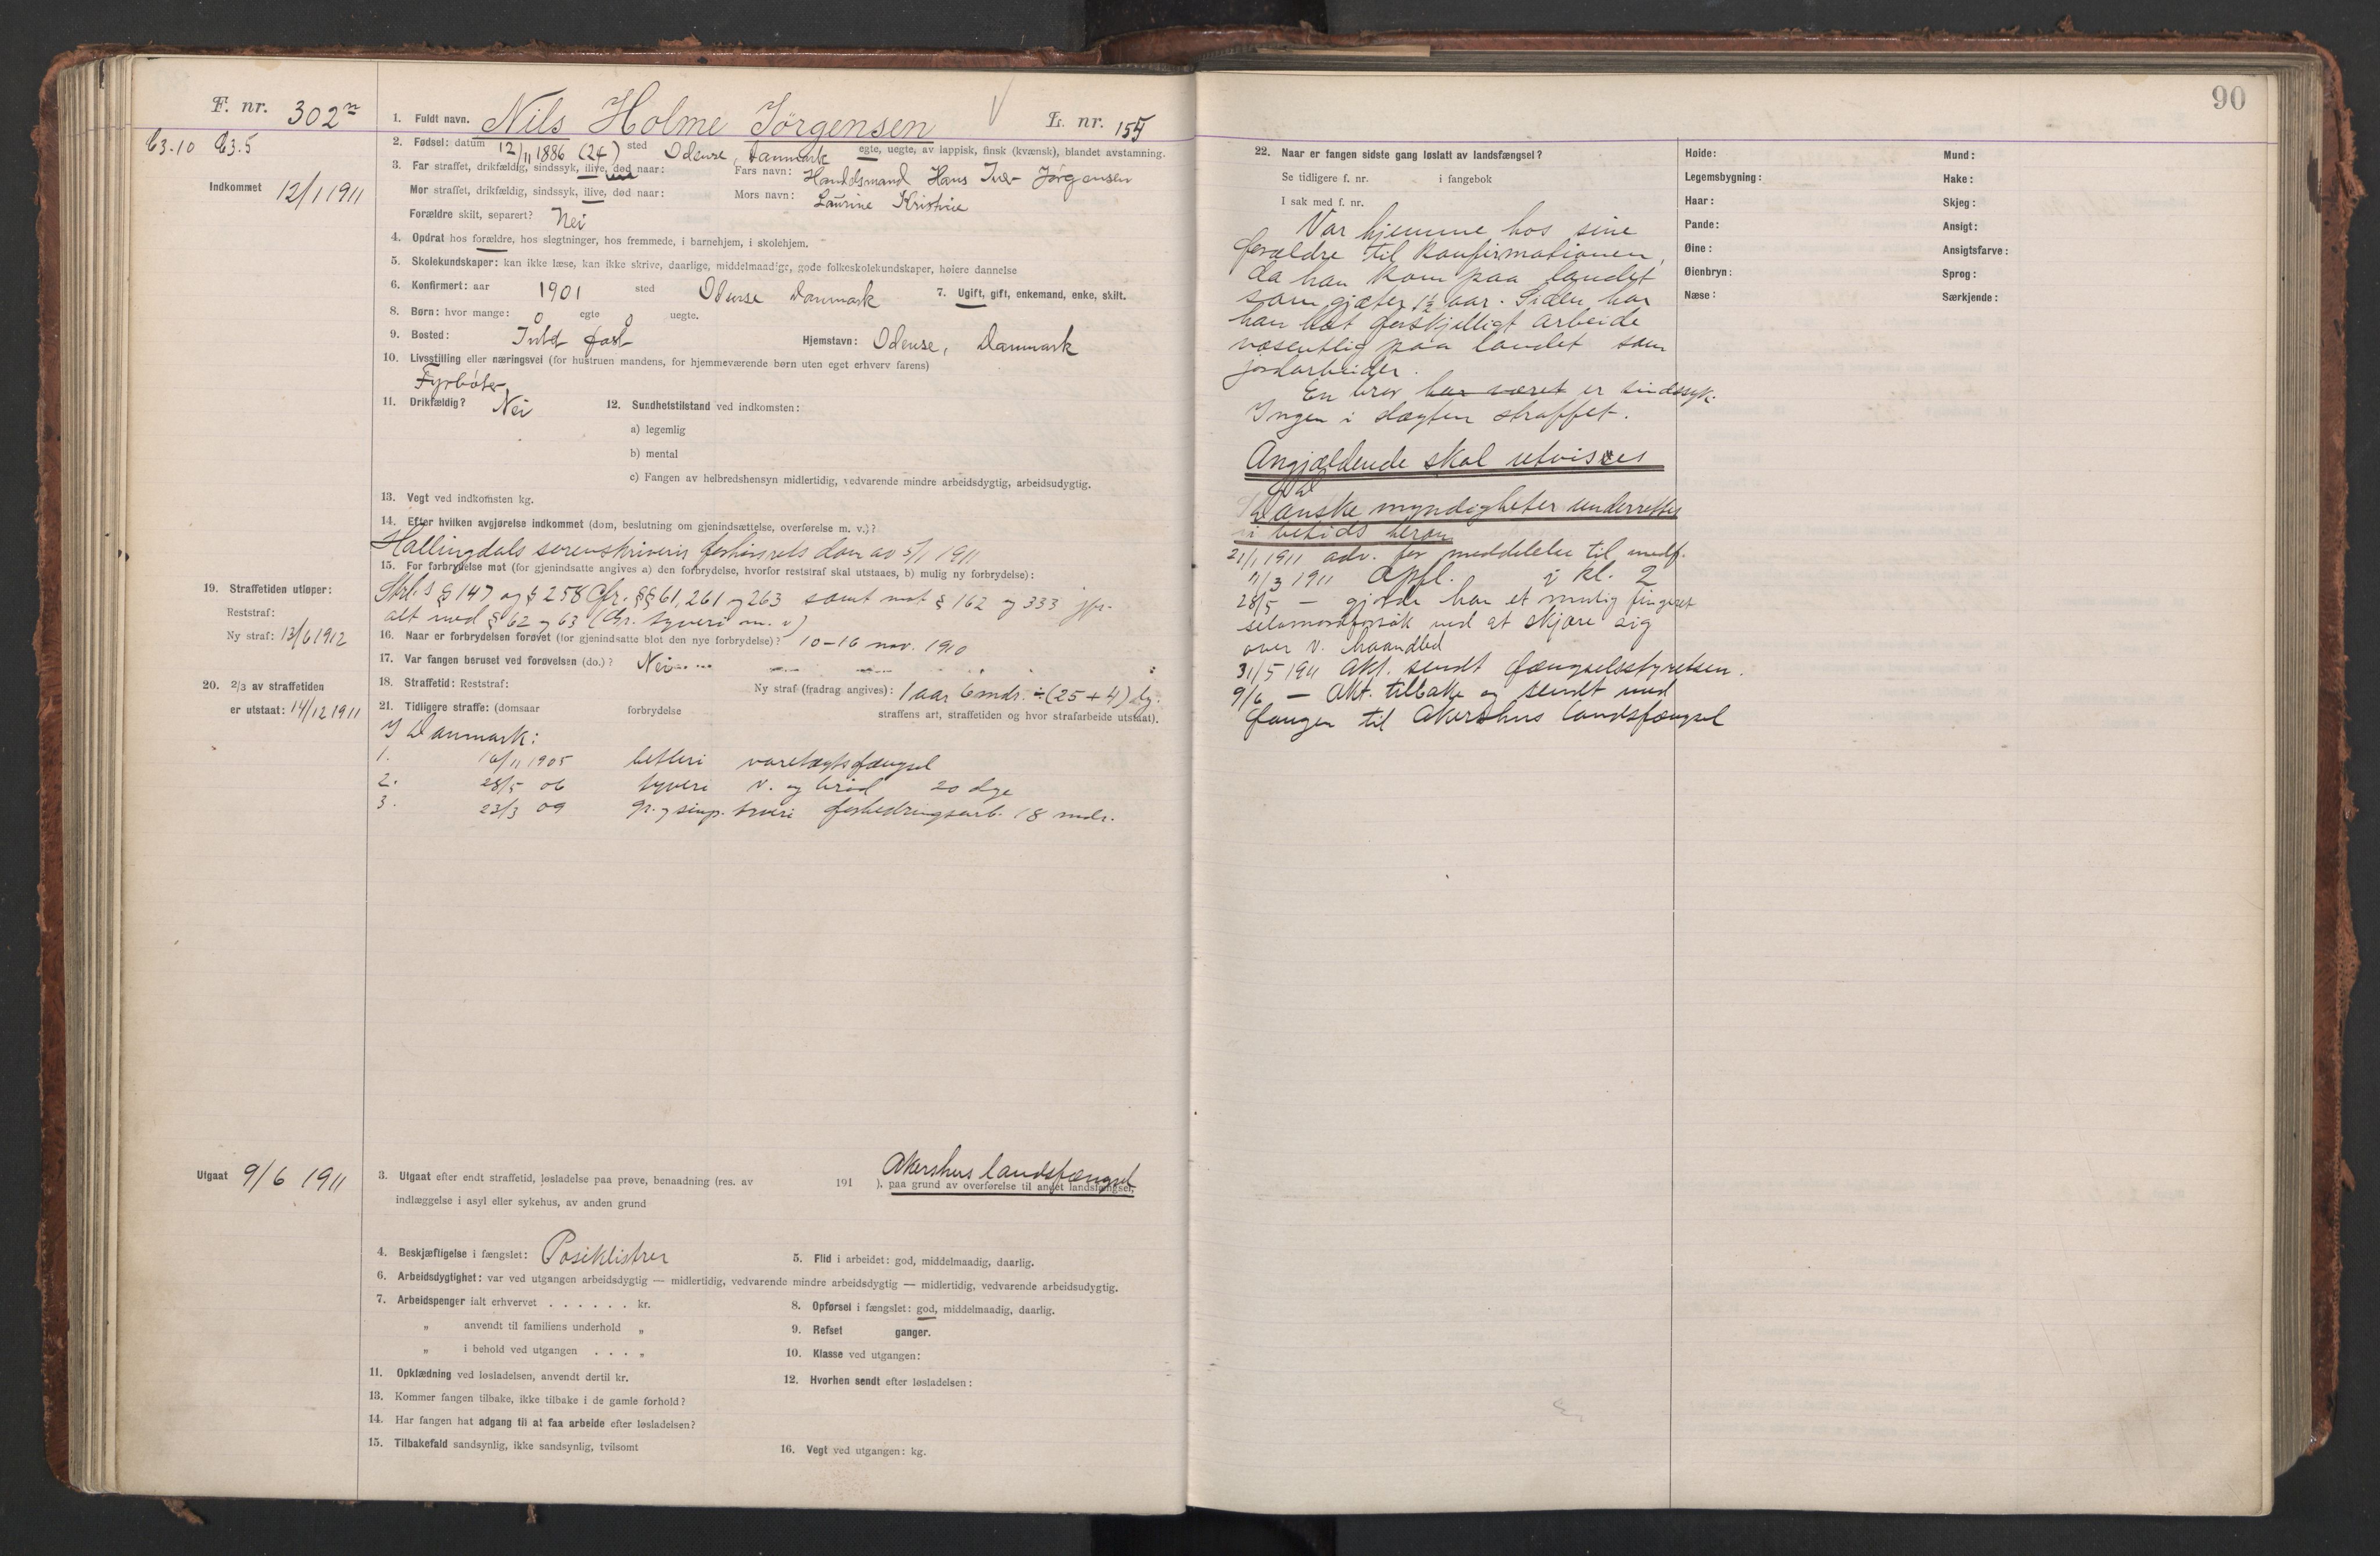 F. nr. 302
C3.10 C3.5
1. Fuldt navn. Nils Holme Jörgensen L. nr. 155
2. Fødsel: datum 12/11 1886 (24) sted Odense, Danmark egte, uegte, av lappisk, finsk (kvænsk), blandet avstamning.
3. Far straffet, drikfældig, sindssyk, ilive, død naar: Fars navn: Handelsmand Hans Iver Jörgensen
Indkommet 12/1 1911
Mor straffet, drikfældig, sindssyk, ilive, død naar: Mors navn: Laurine Kristine
Forældre skilt, separert? Nei
4. Opdrat hos forældre, hos slegtninger, hos fremmede, i barnehjem, i skolehjem.
5. Skolekundskaper: kan ikke læse, kan ikke skrive, daarlige, middelmaadige, gode folkeskolekundskaper, høiere dannelse
6. Konfirmert: aar 1901 sted Odense Danmark 7. Ugift, gift, enkemand, enke, skilt.
8. Børn: hvor mange: 0 egte 0 uegte.
9. Bosted: Intet fast Hjemstavn: Odense, Danmark
10. Livsstilling eller næringsvei (for hustruen mandens, for hjemmeværende børn uten eget erhverv farens)
Fyrböter
11. Drikfældig? Nei 12. Sundhetstilstand ved indkomsten:
a) legemlig
b) mental
c) Fangen av helbredshensyn midlertidig, vedvarende mindre arbeidsdygtig, arbeidsudygtig.
13. Vegt ved indkomsten kg.
14. Efter hvilken avgjørelse indkommet (dom, beslutning om gjenindsættelse, overførelse m. v.)?
Hallingdals sorenskriveris forhörsrets dom av 5/1 1911
15. For forbrydelse mot (for gjenindsatte angives a) den forbrydelse, hvorfor reststraf skal utstaaes, b) mulig ny forbrydelse):
Strl.s § 147 og § 258 cfr. §§ 61, 261 og 263 samt mot § 162 og 333 jfr.
alt med § 62 og 63 (Gr. tyveri m. v)
19. Straffetiden utløper:
Reststraf:
Ny straf: 13/6 1912
16. Naar er forbrydelsen forøvet (for gjenindsatte blot den nye forbrydelse)? 10-16 nov. 1910
17. Var fangen beruset ved forøvelsen (do.)? Nei
18. Straffetid: Reststraf: Ny straf (fradrag angives): 1 aar 6 mdr. ÷ (25 + 4) dg.
20. 2/3 av straffetiden
er utstaat: 14/12 1911
21. Tidligere straffe: (domsaar forbrydelse straffens art, straffetiden og hvor strafarbeide utstaat).
I Danmark:
1. 16/11 1905 betleri varetægtsfængsel
2. 28/5 06 tyveri v. og bröd 20 dge
3. 23/3 09 gr. og simp. tyveri forbedringsarb. 18 mdr.
Utgaat 9/6 1911
Akershus landsfængsel
3. Utgaat efter endt straffetid, løsladelse paa prøve, benaadning (res. av 191 ), paa grund av overførelse til andet landsfængsel,
indlæggelse i asyl eller sykehus, av anden grund
4. Beskjæftigelse i fængslet: Poseklistrer 5. Flid i arbeidet: god, middelmaadig, daarlig.
6. Arbeidsdygtighet: var ved utgangen arbeidsdygtig — midlertidig, vedvarende mindre arbeidsdygtig — midlertidig, vedvarende arbeidsudygtig.
7. Arbeidspenger ialt erhvervet . . . . . . kr. 8. Opførsel i fængslet: god, middelmaadig, daarlig.
„ anvendt til familiens underhold „ 9. Refset ganger.
„ i behold ved utgangen . . . „ 10. Klasse ved utgangen:
11. Opklædning ved løsladelsen, anvendt dertil kr. 12. Hvorhen sendt efter løsladelsen:
13. Kommer fangen tilbake, ikke tilbake i de gamle forhold?
14. Har fangen hat adgang til at faa arbeide efter løsladelsen?
15. Tilbakefald sandsynlig, ikke sandsynlig, tvilsomt 16. Vegt ved utgangen: kg.
90
22. Naar er fangen sidste gang løslatt av landsfængsel?
Se tidligere f. nr. i fangebok
I sak med f. nr.
Var hjemme hos sine
forældre til konfirmationen,
da han kom paa landet
som gjæter 1½ aar. Siden har
han hat forskjelligt arbeide
væsentlig paa landet som
jordarbeider.
En bror har været er sindssyk.
Ingen i slægten straffet.
Angjældende skal utvises
Danske myndigheter underrettes
i betids herom
21/1 1911 adv. for meddelelse til medf.
4/3 1911 Opfl. i kl. 2
28/5 — gjorde han et mulig fingeret
selvmordforsök ved at skjære sig
over v. haandled
31/5 1911 Akt. sendt fængselsstyrelsen.
9/6 — Akt. tilbake og sendt med
fangen til Akershus landsfængsel
Høide: Mund:
Legemsbygning: Hake:
Haar: Skjeg:
Pande: Ansigt:
Øine: Ansigtsfarve:
Øienbryn: Sprog:
Næse: Særkjende: